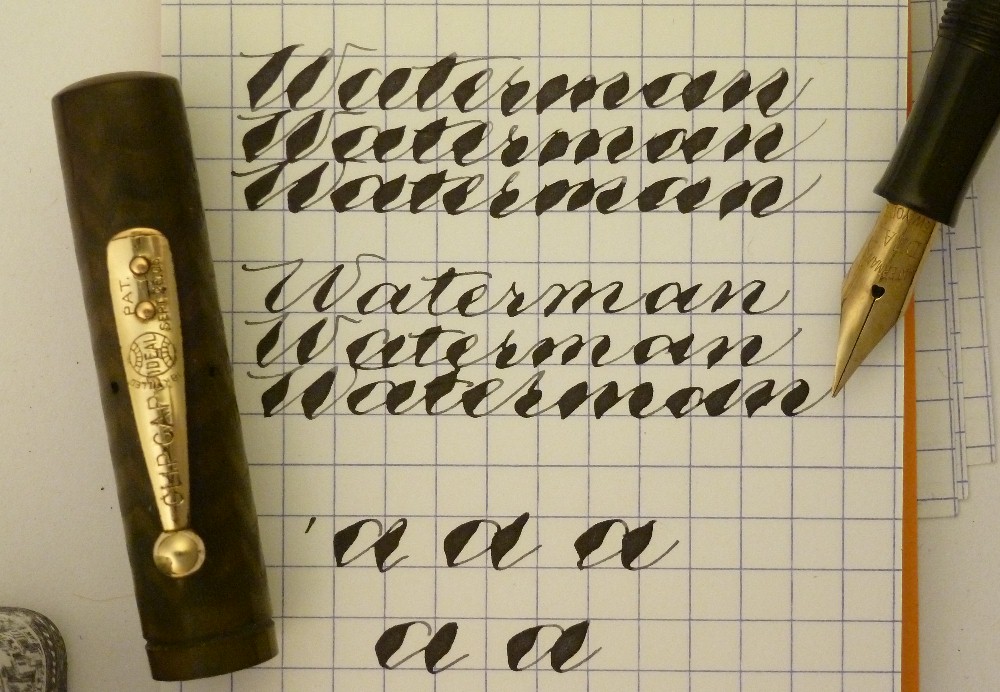 Waterman
Waterman
Waterman
Waterman
Waterman
Waterman
a a a
a a
PAT.
IDEAL
CLIP-CAP